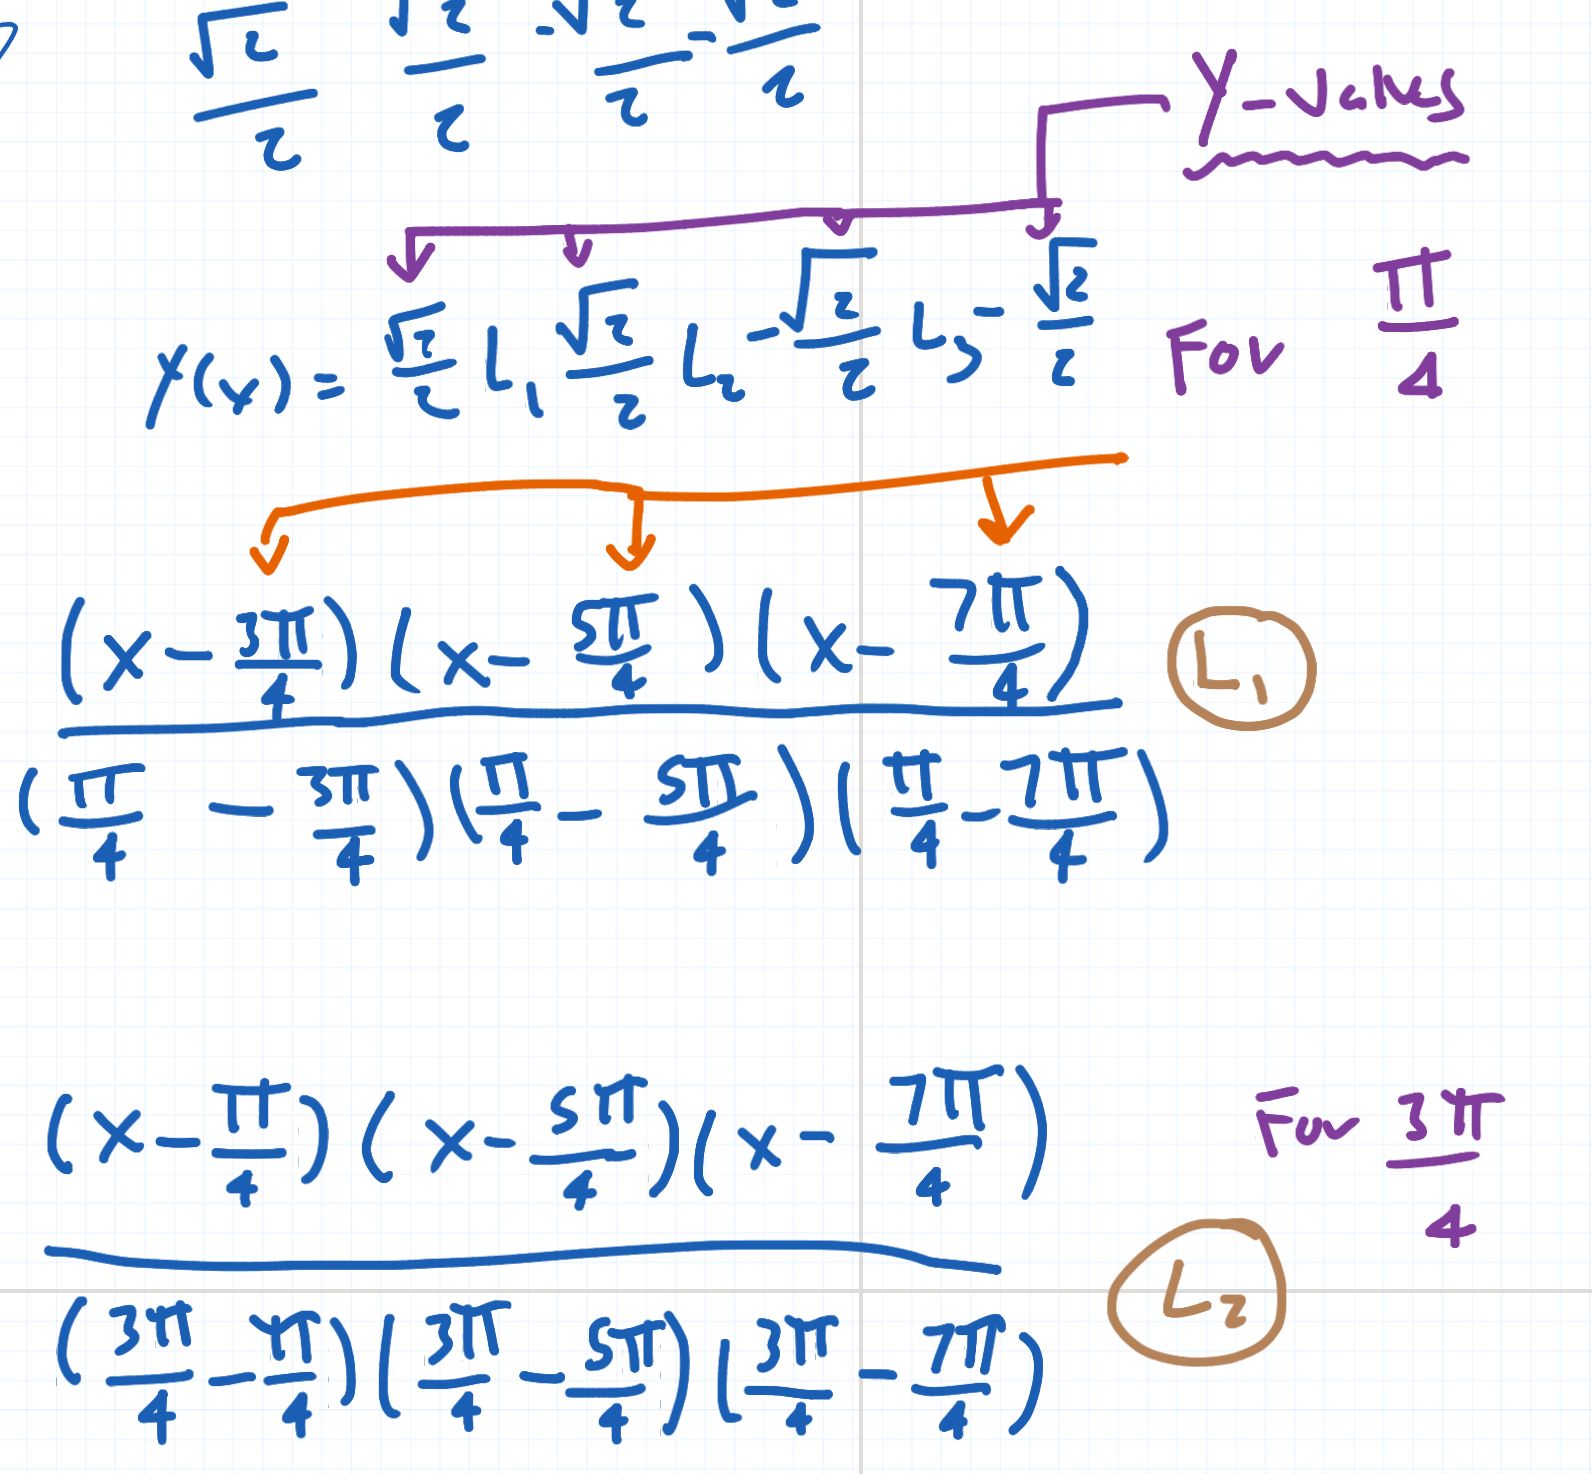 √2/2 √2/2 -√2/2 -√2/2
Y-Values
Y(x) = √2/2 L₁ √2/2 L₂ -√2/2 L₃ - √2/2 For π/4
(x - 3π/4)(x - 5π/4)(x - 7π/4) L₁
(π/4 - 3π/4)(π/4 - 5π/4)(π/4 - 7π/4)
(x - π/4)(x - 5π/4)(x - 7π/4) For 3π/4
(3π/4 - π/4)(3π/4 - 5π/4)(3π/4 - 7π/4) L₂